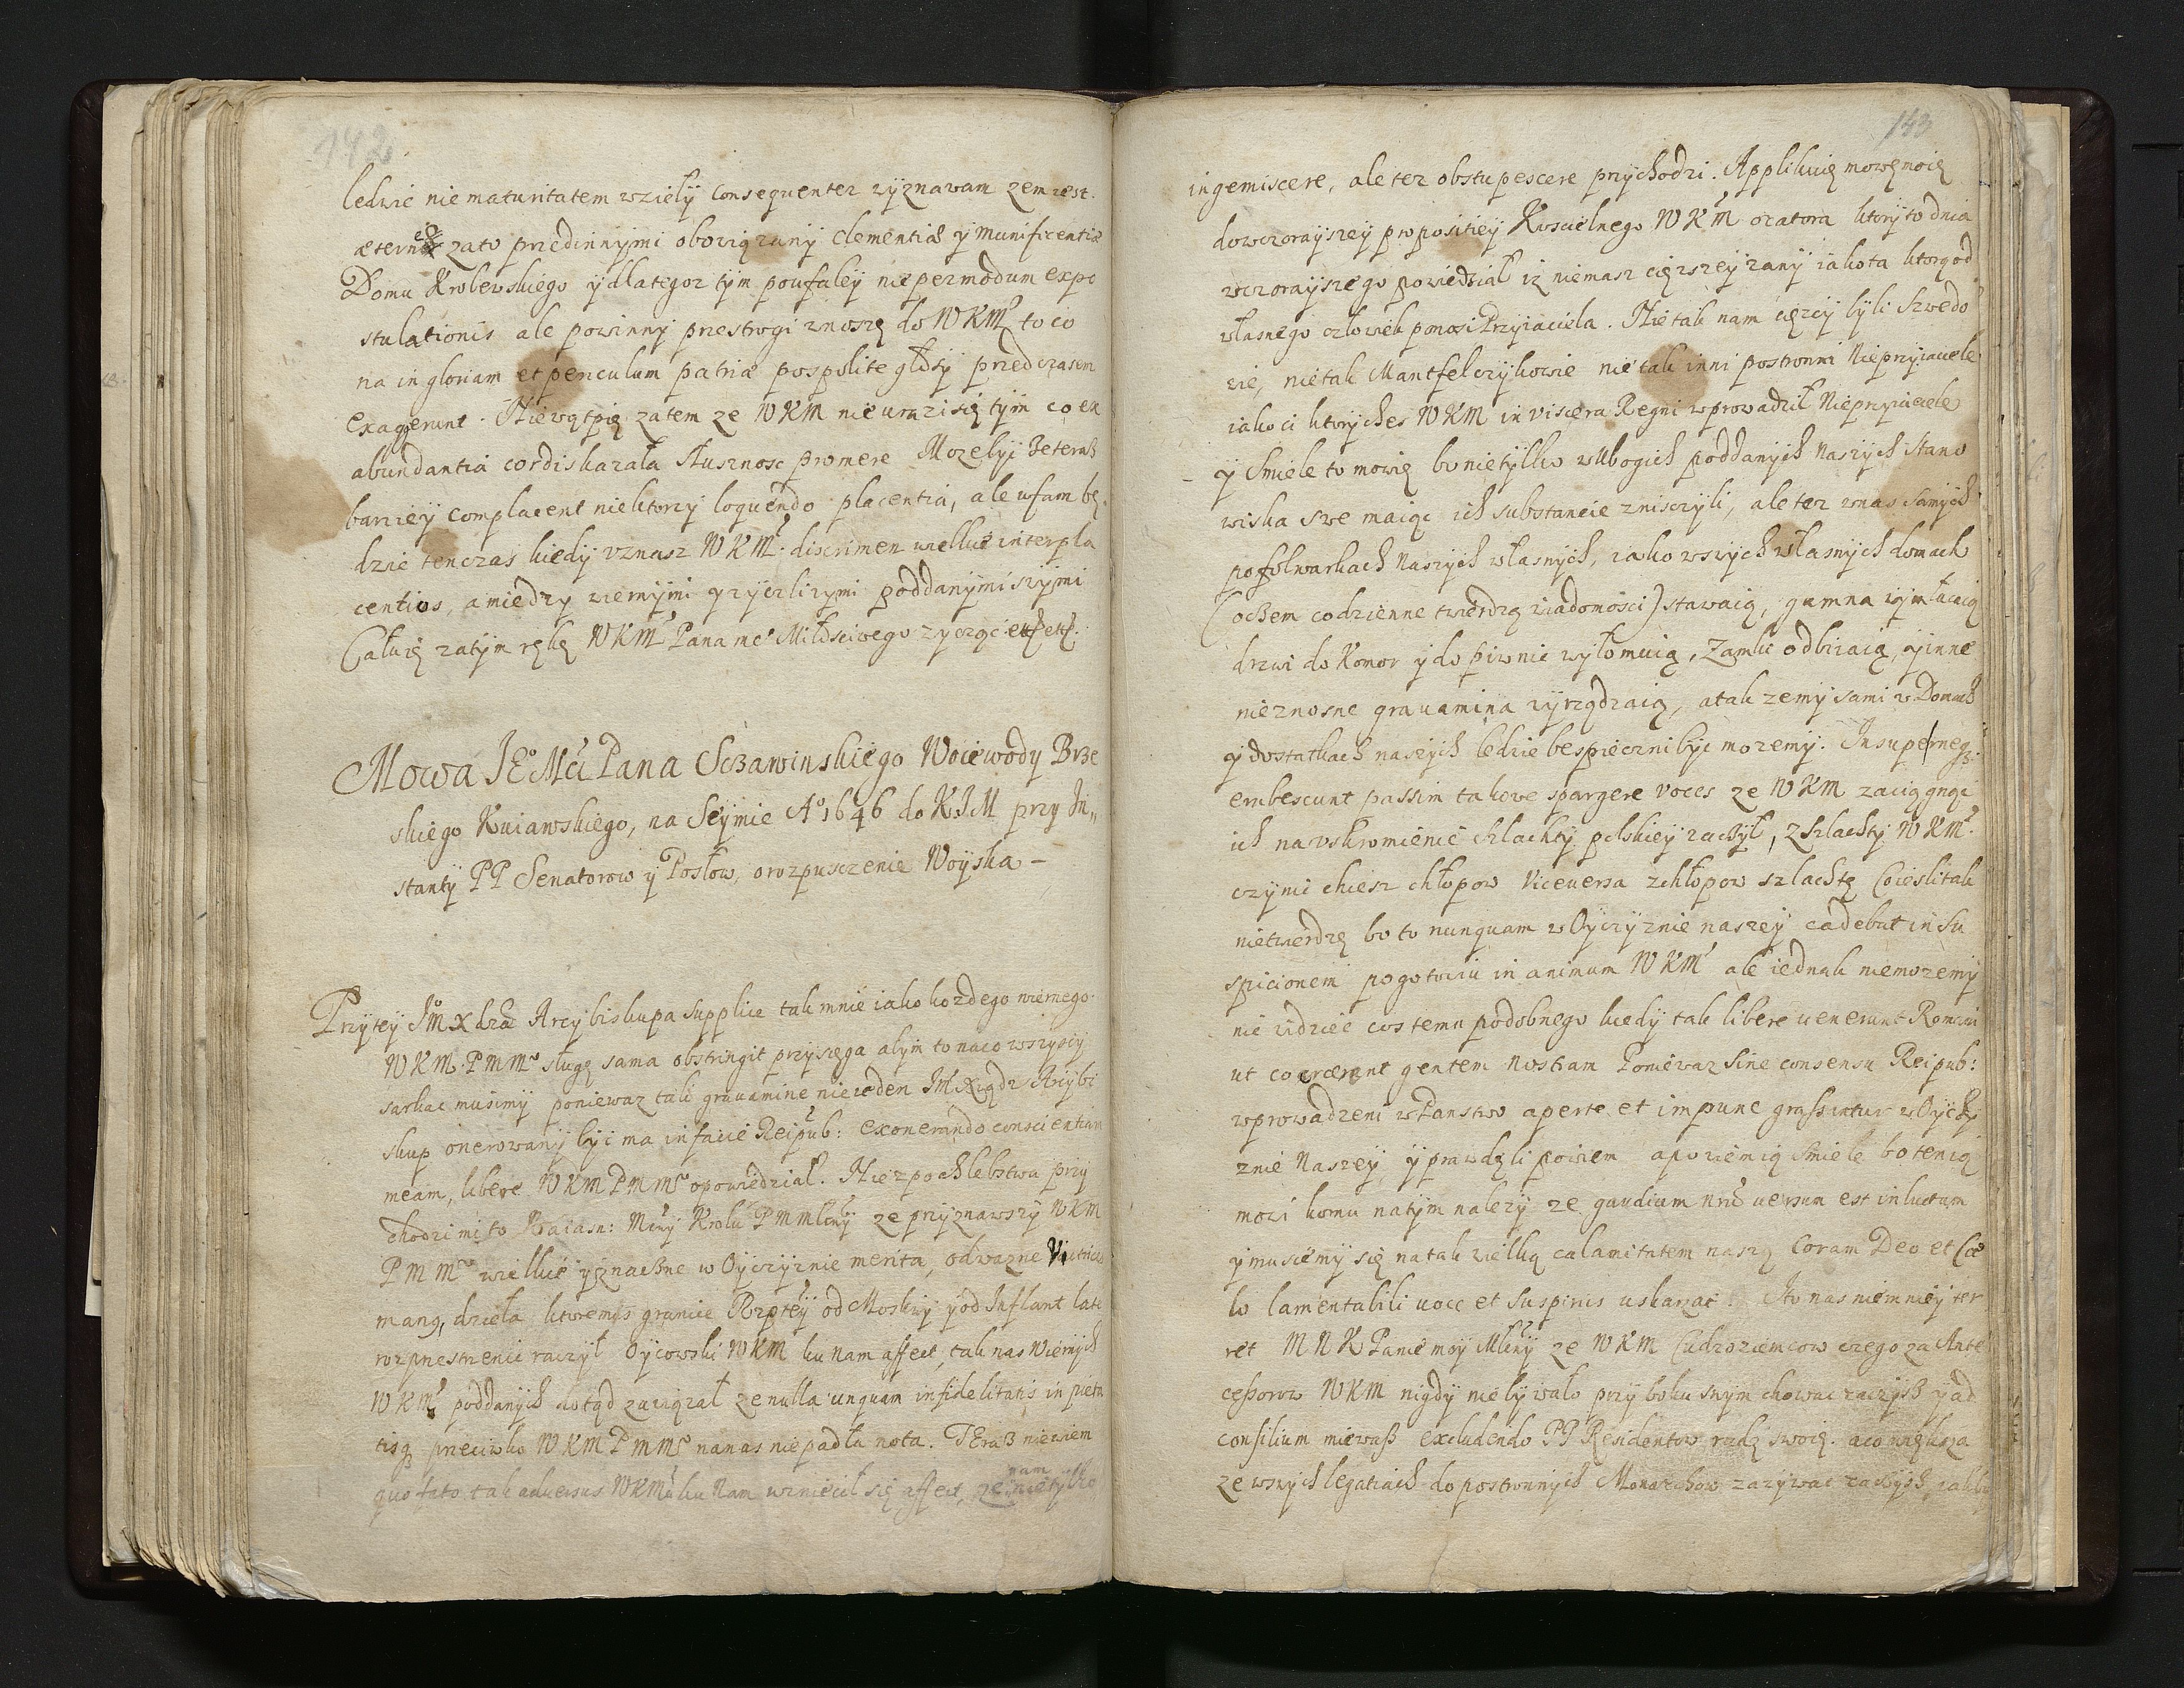 142
ledwie nie maturitatem wzieły consequenter vyznawam zem iest
æterno zato przedinnymi obowiązany clementiæ y munificentiæ
Domu Krolewskiego y dlategoz tym poufaley nie per modum expo
stulationis ale powinny przestrogi wnoszę do WKMci to co
na in gloriam et periculum patriæ pospolite głosy przed czasem
exagerunt. Niewątpię zatem ze WKM nie urazi się tym co ex
abundantia cordis kazała słusznosc promere Mozelyi
barziey complacent niektorzy loquendo placentia, ale ufam bę
dzie tenczas kiedy vznasz WKMć: discrimen wielkie inter pla
centios, a miedzy wiernymi y zyczliwymi poddanymi swymi
Całuię zatym rękę WKMci Pana me° Miłosciwego zycząc etc etc.
Mowa JE° Mći Pana Sczawinskiego Woiewody Brze
skiego Kuiawskiego, na Seymie A° 1646 do KJM przy In„
stanty PP Senatorow y Posłow, o rozpusczenie Woyska –
Przy tey Jm Xdza Arcybiskupa supplice tak mnie iako kozdego wiernego
WKM PMM° sługę sama obstringit przysięga abym to naco wszyscy
sarkac musimy poniewaz tali gravamine nie ieden Jm Xiądz Arcybi
skup onerowany byc ma in facie Reipub: exonerando conscientiam
meam, libere WKM PMM° opowiedział. Nie z pochlebstwa przy
chodzi mi to Naiasn: Mcwy Krolu PMMłwy ze przyznawszy WKM
PMM° wielkie y znaczne w Oyczyznie merita, odwazne
manu, dzieła ktoremis granice Rzptey od Moskwy y od Inflant late
rozprzestrzenic raczył Oycowski WKM ku nam affect, tak nas wiernych
WKMci poddanych dotąd zawiązał ze nulla unquam infidelitatis impieta
tisq przeciwko WKM PMM° na nas nie padła nota. Teraz niewiem
quo fato tak adversus WKMci ku nam wzniecił się affect, ze nam nietylko
143
ingemiscere, ale tez obstupescere przychodzi. Applikuię mowę moię
do wczorayszey propositiey Koscielnego WKM oratora ktory to dnia
wczorayszego powiedział iz niemasz cięzszey rany iako ta ktorą od
własnego człowiek ponosi Przyiaciela. Nie tak nam cięzcy byli Szwedo
wie, nie tak Mantfelczykowie nie tak inni postronni Nieprzyiaciele
iako ci ktoryches WKM in viscera Regni wprowadził Nieprzyiaciele
y smiele to mowię bo nietylko w Ubogich poddanych naszych stano
wiska swe maiąc ich substancie zniszczyli, ale tez w nas samych
po folwarkach naszych własnych, iako w swych własnych domach
(o czem codzienne twierdzą wiadomosci) stawaią, gumna wymłucaią
drzwi do Komor y do piwnic wyłomuią, Zamki odbiiaią, y inne
nieznosne gravamina wyrządzaią, a tak ze my sami w Domach
y dostatkach naszych ledzie bespieczni byc mozemy. Insuper neq;
erubescunt passim takowe spargere voces ze WKM zaciągnąc
ich na vskromienie szlachty polskiey raczył, z szlachty WKMć
czynic chcesz chłopow viceversa z chłopow szlachtę Coiesli tak
nietwierdzę bo to nunquam w Oyczyznie naszey cadebat in su
spicionem pogotowiu in animum WKMci ale iednak niemozemy
nie widziec cos temu podobnego kiedy tak libere venerunt Romani
ut coercerent gentem nostram Poniewaz sine consensu Reipub:
wprowadzeni w Panstwo aperte et impune grassantur w Oyczy
znie naszey, y prawdęli powiem a powiem ią smiele bo tenią
mowi komu na tym nalezy ze gaudium nrm versum est in luctum
y musiemy się na tak wielką calamitatem naszę Coram Deo et Cœ
lo lamentabili voce et suspiriis uskarzac. Ato nas niemniey ter
ret MNK Panie moy Młwy ze WKM Cudzoziemcow czego za Ante
cessorow WKM nigdy nie bywało przy boku swym chowac raczysz y ad
consilium miewasz excludendo PP Residentow radę swoię. a co większa
ze w swych legatiach do postronnych Monarchow zazywac raczysz iakby